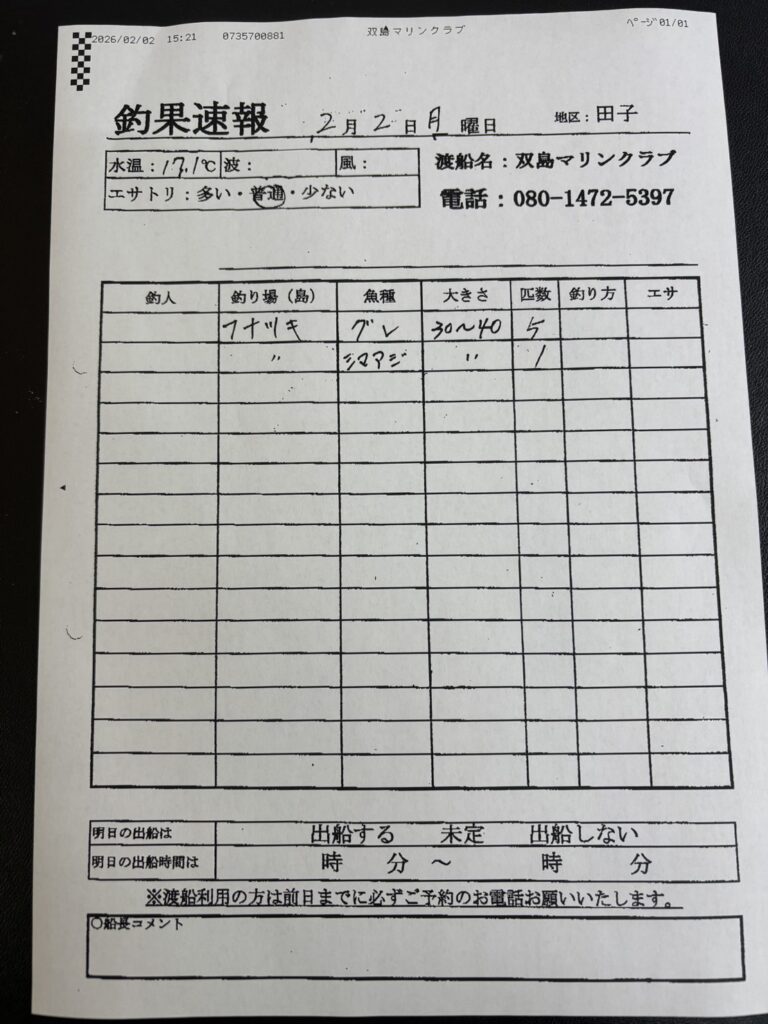 2026/02/02 15:21 0735700881 双島マリンクラブ ページ 01/01
釣果速報 2月2日月曜日 地区：田子
水温：17.1℃ 波： 風： 渡船名：双島マリンクラブ
エサトリ：多い・普通・少ない 電話：080-1472-5397
釣人 釣り場（島） 魚種 大きさ 匹数 釣り方 エサ
フナツキ グレ 30～40 5
〃 シマアジ 〃 1
明日の出船は 出船する 未定 出船しない
明日の出船時間は 時 分 ～ 時 分
※渡船利用の方は前日までに必ずご予約のお電話お願いいたします。
○船長コメント